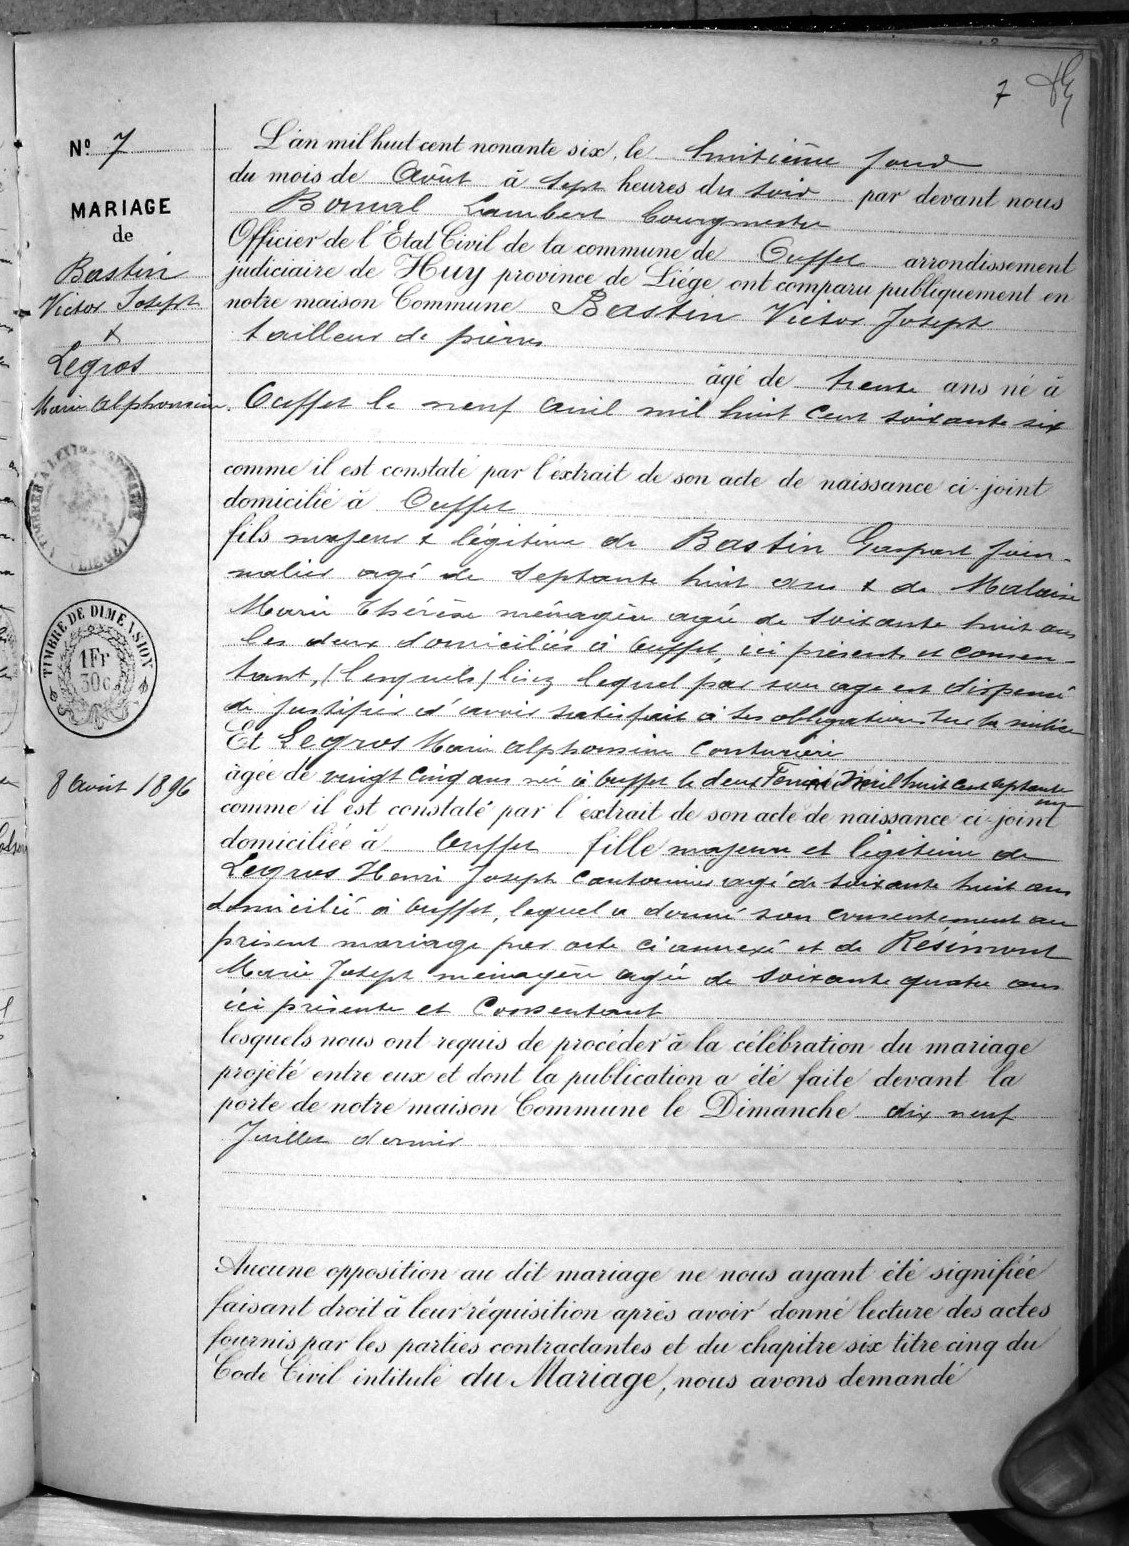 7
Nº 7
MARIAGE
de
Bastin
Victor Joseph
&
Legros
Marie Alphonsine
TIMBRE DE DIMENSION
1Fr
30c
8 Août 1896
L'an mil huit cent nonante six, le huitième jour
du mois de Août à sept heures du soir par devant nous
Lambert bourgmestre
Officier de l'Etat Civil de la commune de Ouffet arrondissement
judiciaire de Huy province de Liége ont comparu publiquement en
notre maison Commune Bastin Victor Joseph
tailleur de pierres
âgé de trente ans né à
Ouffet le neuf avril mil huit cent soixante six
comme il est constaté par l'éxtrait de son acte de naissance ci-joint
domicilié à Ouffet
fils majeur & légitime de Bastin Gaspard jour-
nalier agé de septante huit ans & de Malaise
Marie Thérèse ménagère agée de soixante huit ans
les deux domiciliés à Ouffet, ici présents et consen-
tant, (lesquels) lisez lequel par son age est dispensé
de justifier d'avoir satisfait à ses obligations sur la milice
Et Legros Marie Alphonsine couturière
âgée de vingt cinq ans née à Ouffet le deux Février mil huit cent septante
un
comme il est constaté par l'éxtrait de son acte de naissance ci-joint
domiciliée à Ouffet fille majeure et légitime de
Legros Henri Joseph cantonnier agé de soixante huit ans
domicilié à Ouffet, lequel a donné son consentement au
présent mariage par acte ci annexé et de Résimont
Marie Joseph ménagère agée de soixante quatre ans
ici présente et consentant
lesquels nous ont requis de procéder à la célébration du mariage
projété entre eux et dont la publication a été faite devant la
porte de notre maison Commune le Dimanche dix neuf
Juillet dernier
Aucune opposition au dit mariage ne nous ayant été signifiée
faisant droit à leur réquisition après avoir donné lecture des actes
fournis par les parties contractantes et du chapitre six titre cinq du
Code Civil intitulé du Mariage, nous avons demandé